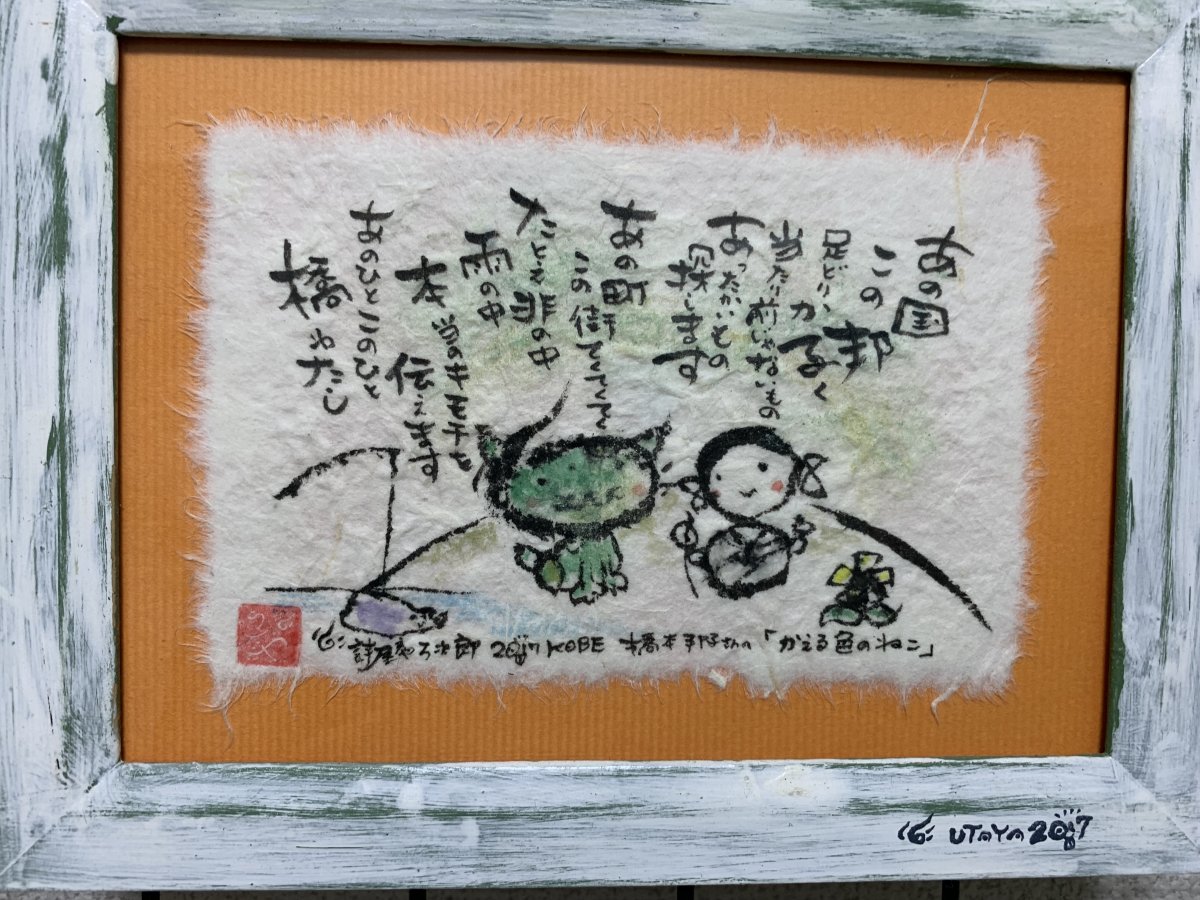 あの国
この邦
足どりかるく
当たり前じゃないもの
あったかいもの
探します
あの町
この街てくてく
たとえ非の中
雨の中
本当のキモチを
伝えます
あのひとこのひと
橋わたし
2017 KOBE 橋本 さんの「かえる色のねこ」
UTAYA 2017